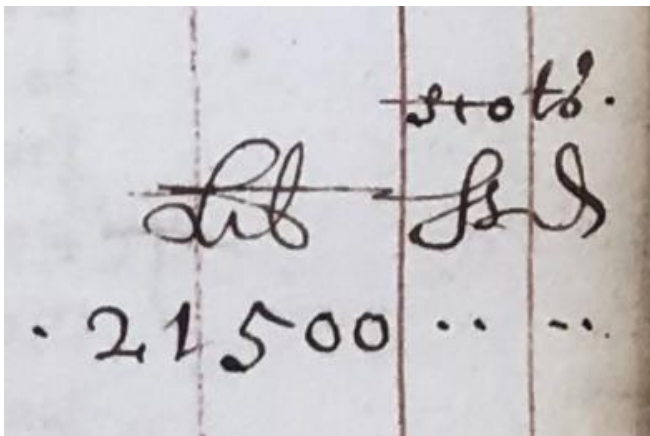 stotš.
Lib ss d
. 21500 .. ..